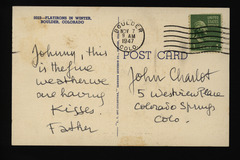 5025—FLATIRONS IN WINTER,
BOULDER, COLORADO
BOULDER
NOV 7
9 AM
1947
COLO.
POST CARD
Johnny, this
is the fine
weather we
are having
Kisses.
Father
John Charlot
5 Westview Place
Colorado Springs
Colo.